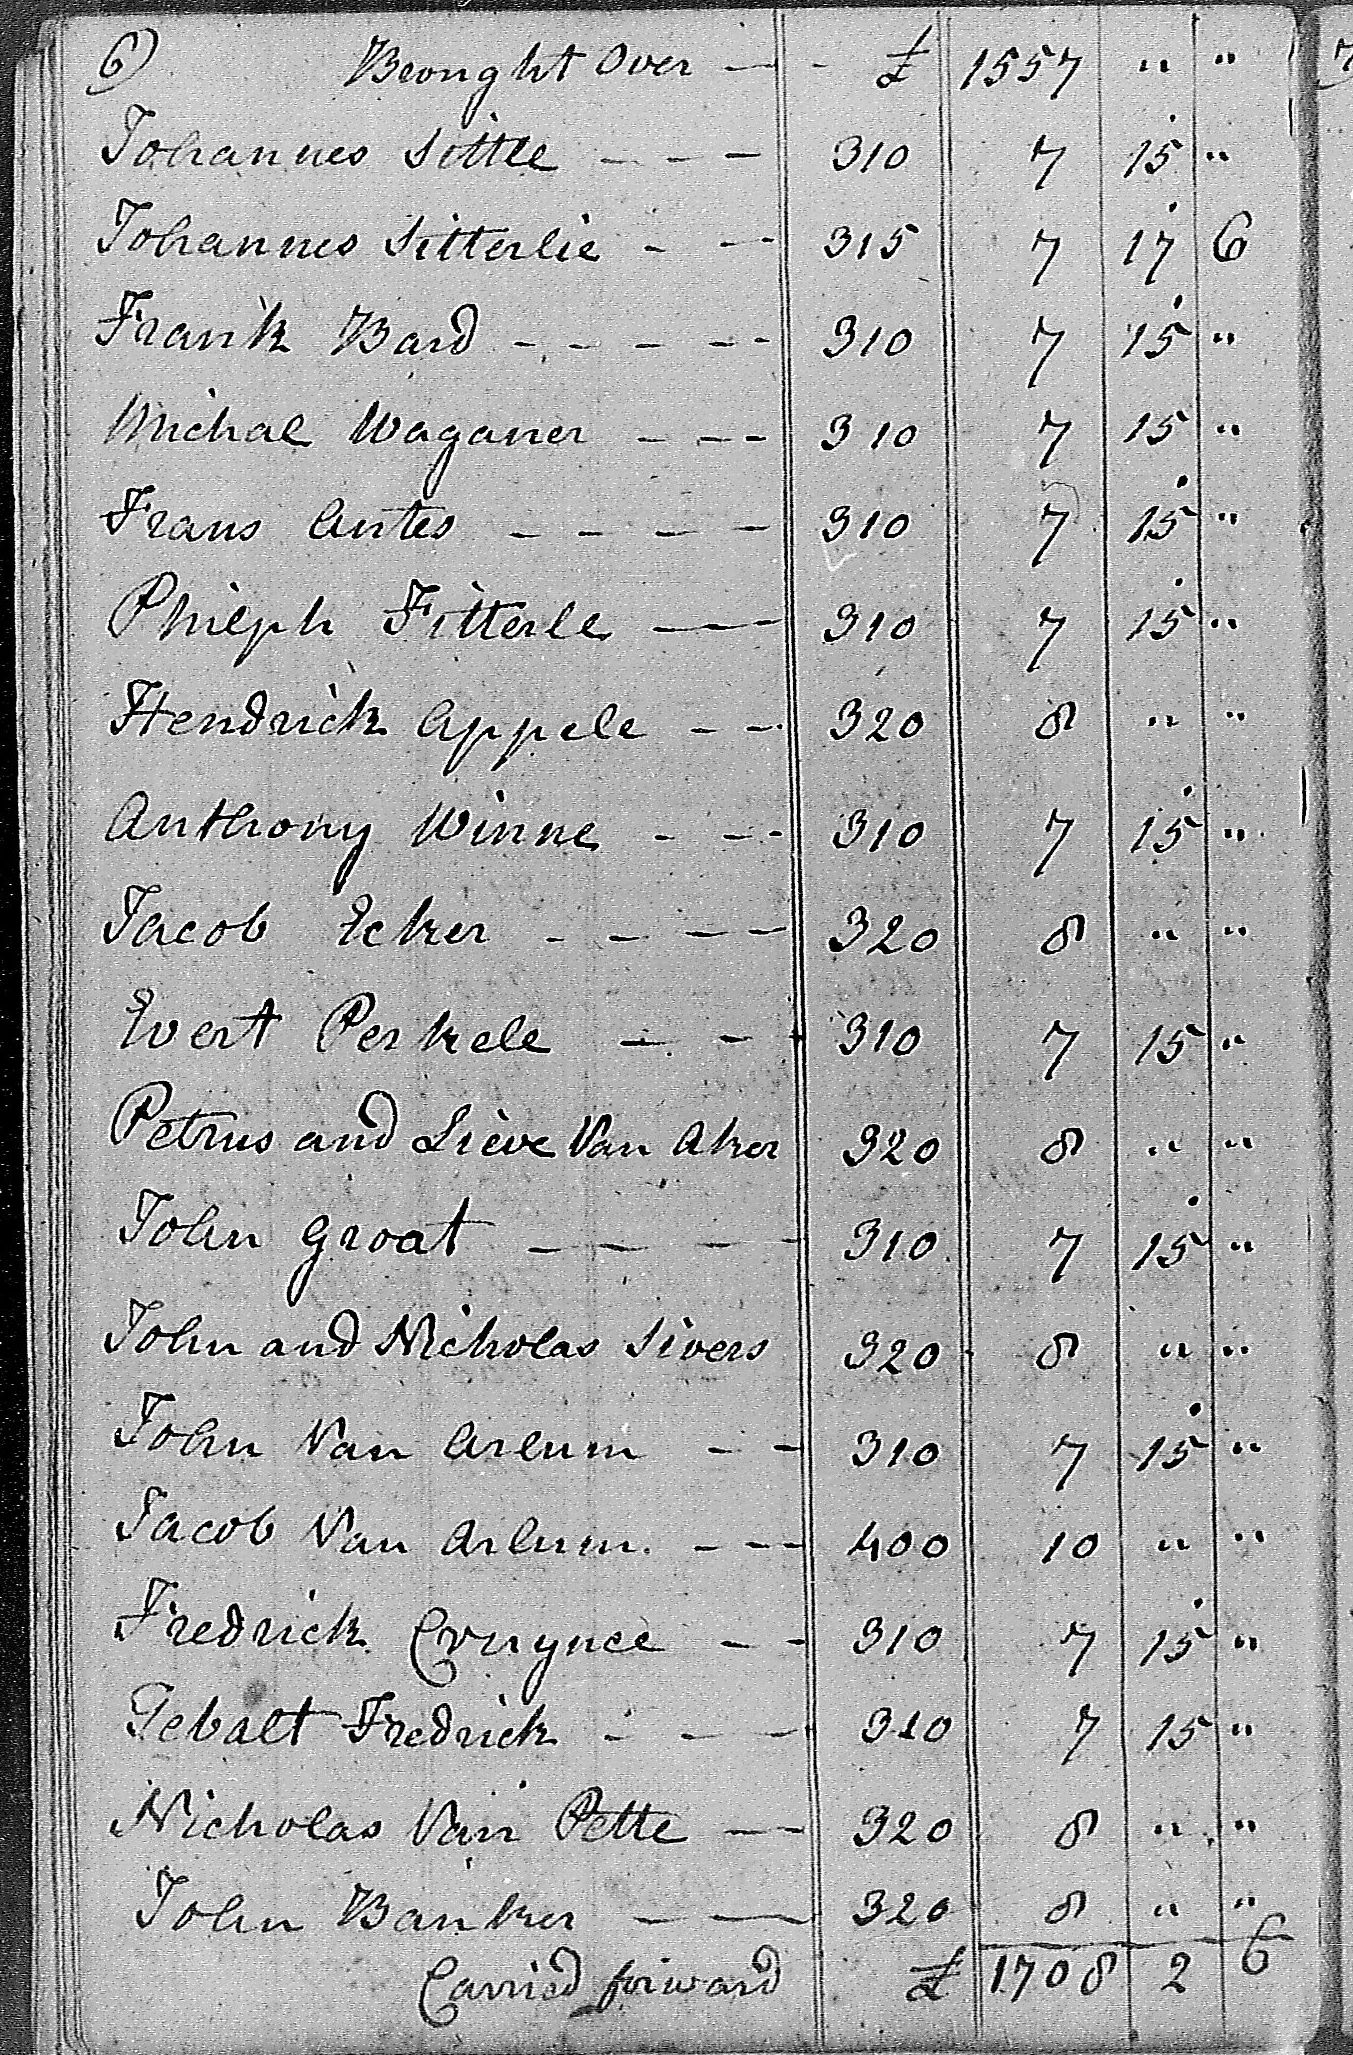 6) Brought Over — - £ 1557 " "
Johannes Sittle - - - 310 7 15 "
Johannes Sitterlie - - - 315 7 17 6
Frank Bard - - - - - 310 7 15 "
Michal Waganer - - - 310 7 15 "
Frans Antes - - - - 310 7 15 "
Philiph Fitterle - - - 310 7 15 "
Hendrick Appele - - 320 8 " "
Anthony Winne - - - 310 7 15 "
Jacob Ecker - - - - 320 8 " "
Evert Perkele - - - 310 7 15 "
Petrus and Lieve Van Aker 320 8 " "
John Groat - - - - 310 7 15 "
John and Nicholas Sivers 320 8 " "
John Van Arlum - - 310 7 15 "
Jacob Van Arlum. - - - 400 10 " "
Fredrick - - 310 7 15 "
Gebalt Fredrick - - - 310 7 15 "
Nicholas Van Pette - - 320 8 " "
John Banker - - 320 8 " "
Carried forward £ 1708 2 6
7